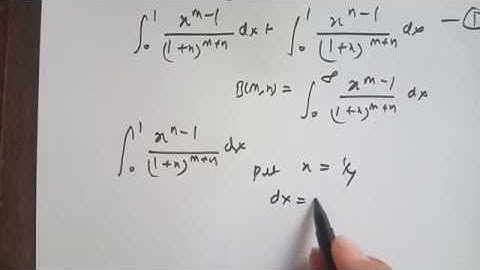 ∫₀¹ x^(m-1)/(1+x)^(m+n) dx + ∫₀¹ x^(n-1)/(1+x)^(m+n) dx — ①
B(m,n) = ∫₀^∞ x^(m-1)/(1+x)^(m+n) dx
∫₀¹ x^(n-1)/(1+x)^(m+n) dx
put x = 1/y
dx =